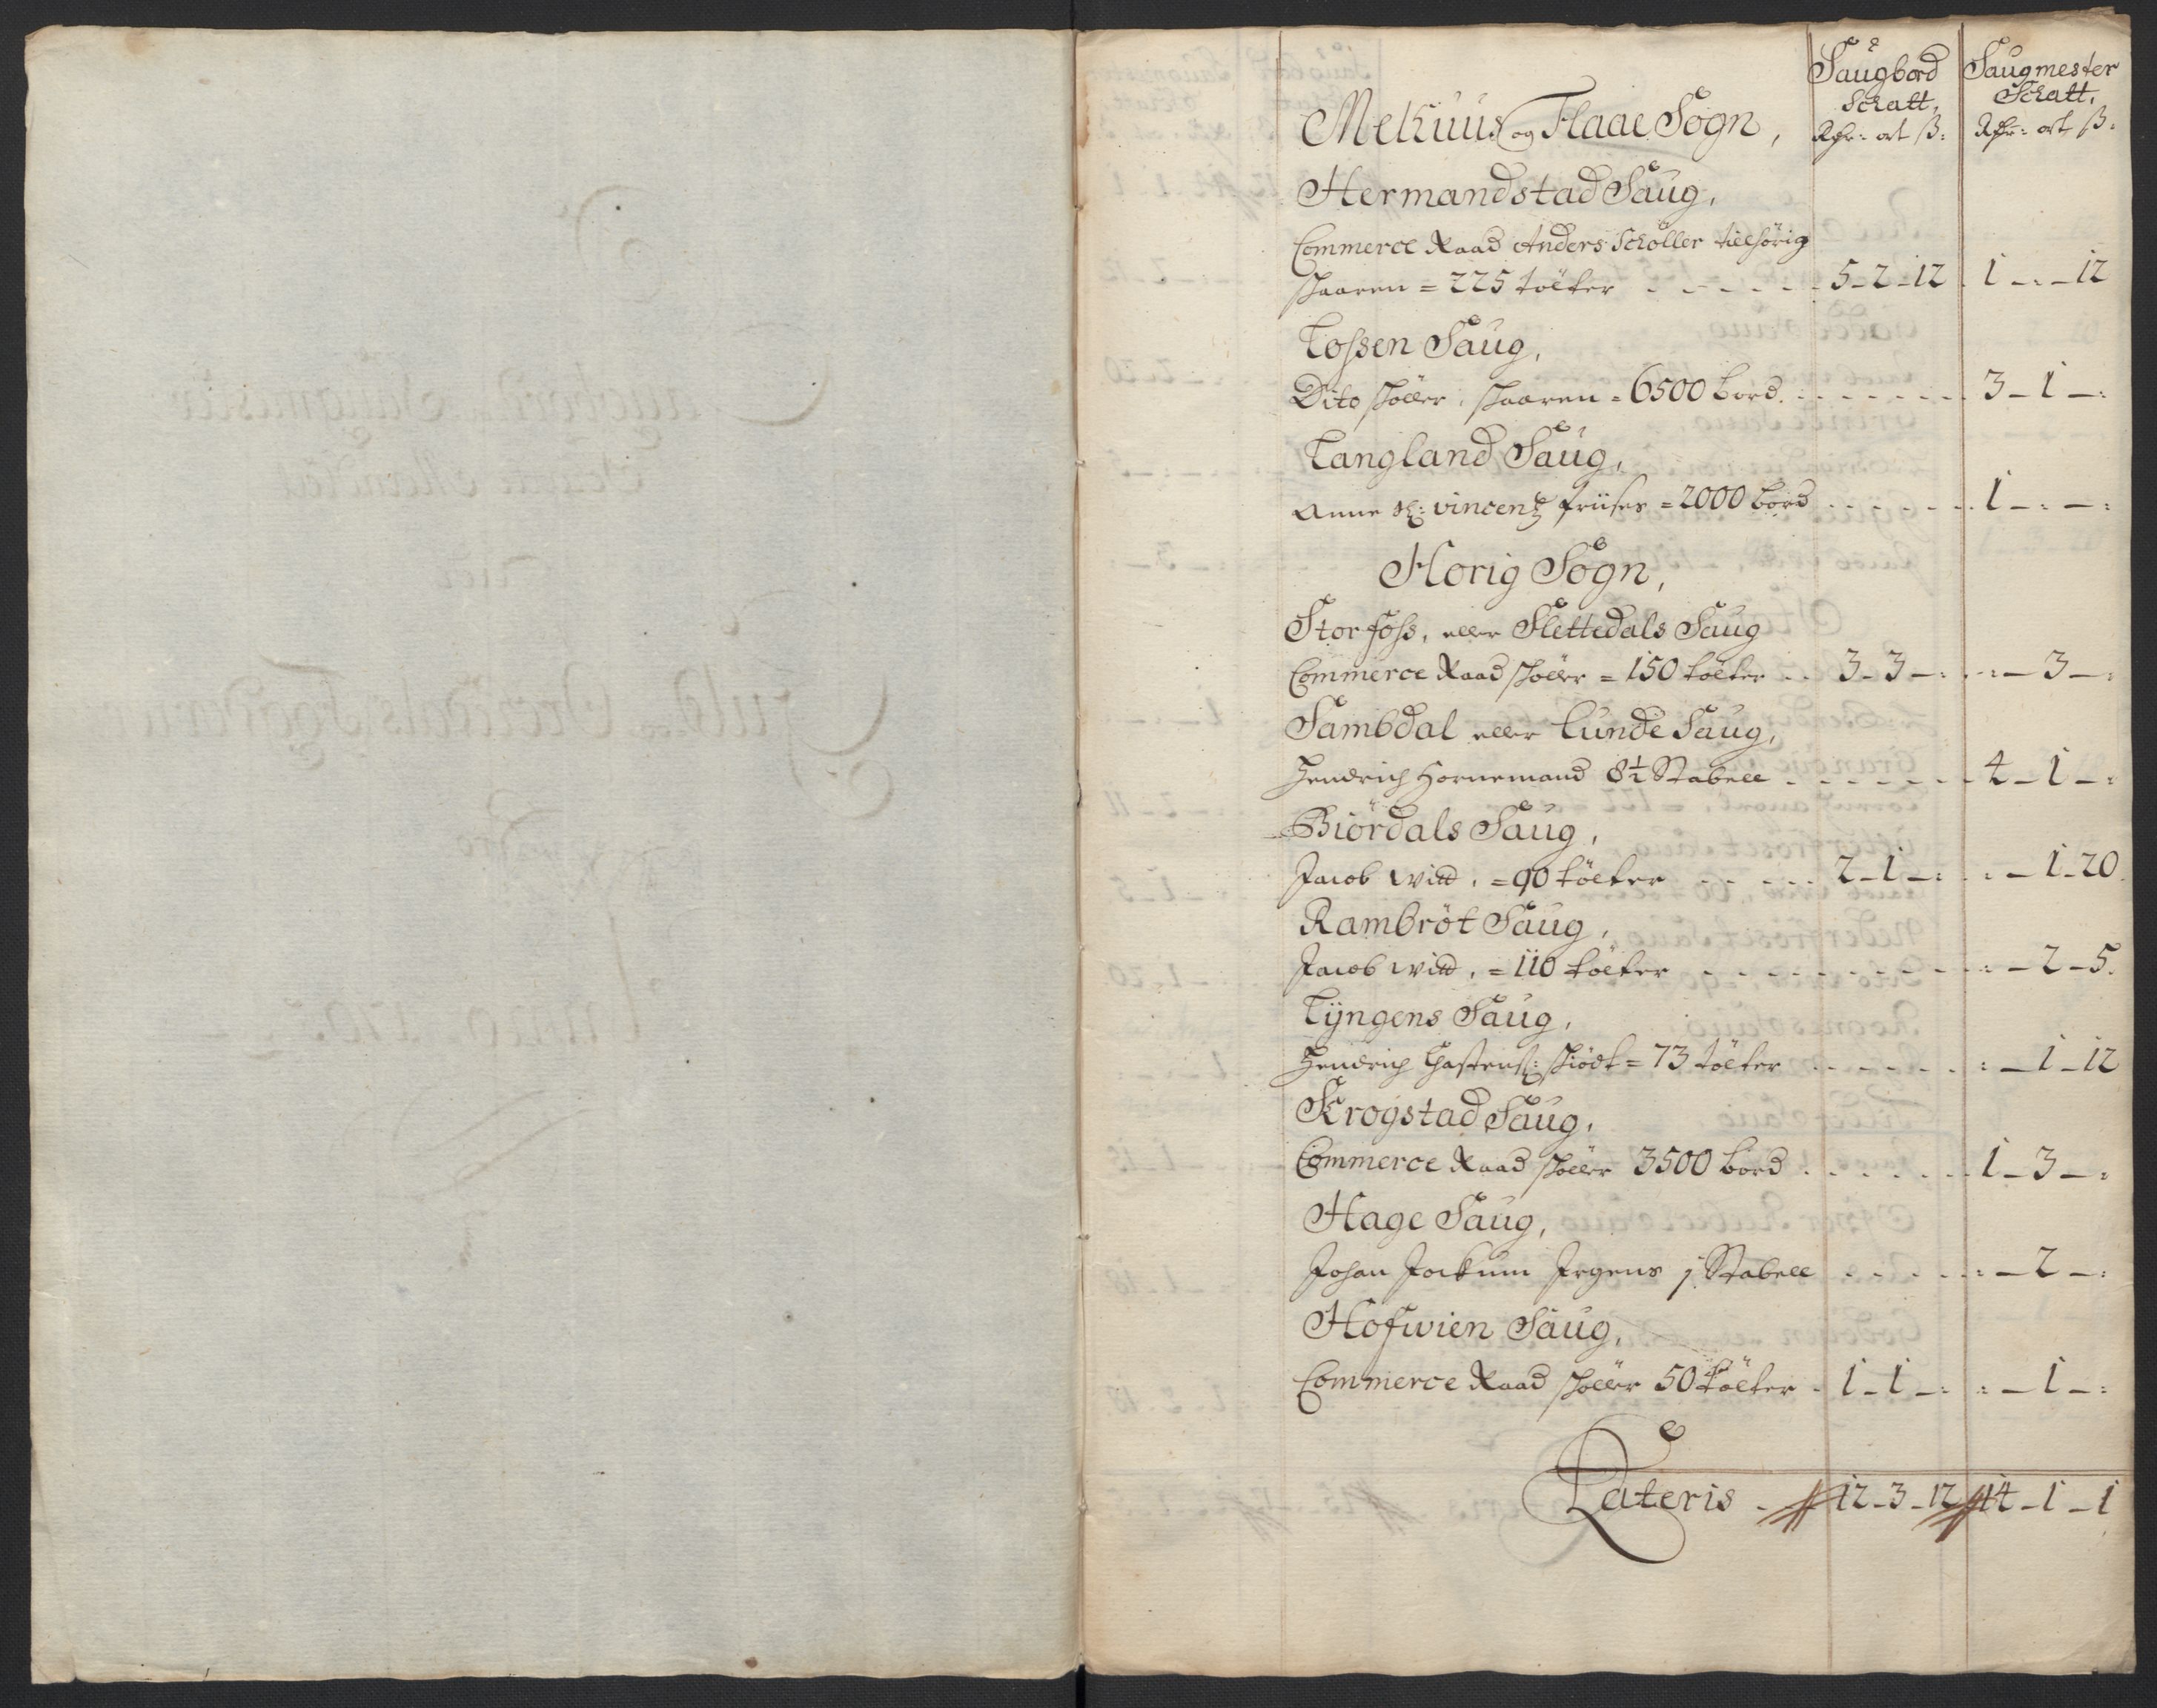 Saugbord Saugmester
Schatt, Schatt,
Melhuus og Flaae Sogn, Rdr: ort ß: Rdr: ort ß:
Hermandstad Saug,
Commerce Raad Anders Schöller tilhörig
skaaren = 225 tölter 5-2-12 1-:-12
Lossen Saug,
Dito Schöller, skaaren = 6500 bord 3-1-:
Langland Saug,
Anne Sl: Vincentz friises = 2000 bord 1-:-:
Horig Sogn,
Storfoss, eller Slettedals Saug
Commerce Raad Schöller = 150 tölter 3-3-: :-3-:
Sambdal eller Lunde Saug,
Hendrich Hornemand 8½ Stabell 4-1-:
Biördals Saug,
Jacob Witt, = 90 tölter 2-1-: :-1-20
Rambröt Saug,
Jacob Witt, = 110 tölter :-2-5.
Lyngens Saug,
Hendrich skiödt = 73 tölter :-1-12
Krogstad Saug,
Commerce Raad Schöller 3500 bord 1-3-:
Hage Saug,
Johan Jockum Jrgens j Stabell :-2-:
Hofwien Saug,
Commerce Raad Schöller 50 tölter 1-1-: :-1-:
Lateris 12-3-12 14-1-1